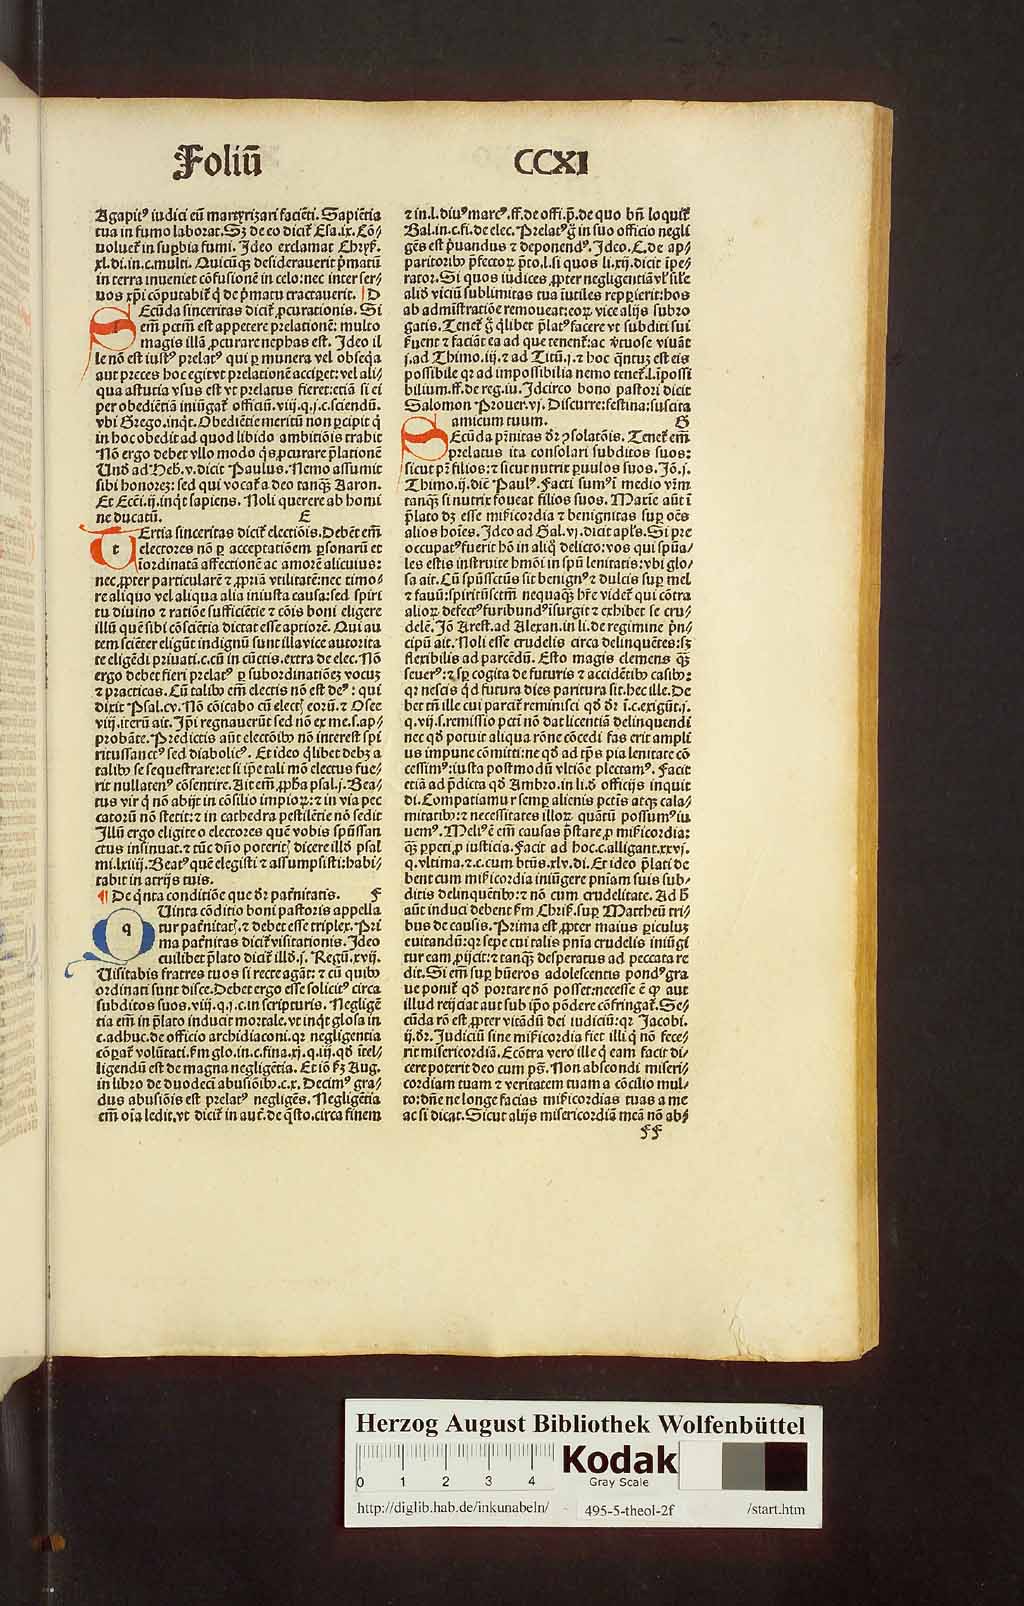 Foliū CCXI
Agapitꝰ iudici eū martyrizari faciēti. Sapiētia
tua in fumo laborat. Sꝫ de eo dicit᷑ Esa.ix. Cō-
uoluet᷑ in suꝑbia fumi. Ideo exclamat Chryſ.
xl.di.in.c.multi. Quicūqꝫ desiderauerit p̄matū
in terra inueniet cōfusionē in celo:nec inter ser-
uos xp̄i cōputabit᷑ q̇ de p̄matu tractauerit. D
SEcūda sinceritas dicit᷑ ꝓcurationis. Si
em̄ pctm̄ est appetere prelationē: multo
magis illā ꝓcurare nephas est. Ideo il
le nō est iustꝰ prelatꝰ qui ꝑ munera vel obseq̄a
aut preces hoc egit vt prelationē acciꝑet: vel ali-
qua astutia vsus est vt prelatus fieret: etiā si ei
per obediētiā iniūgat᷑ officiū.viij.q.j.c.sciendū.
vbi Grego.inq̇t. Obediētie meritū non ꝑcipit q̇
in hoc obedit ad quod libido ambitiōis trahit
Nō ergo debet vllo modo q̇s ꝓcurare p̄lationē
Un̄ ad Heb.v.dicit Paulus. Nemo assumit
sibi honorē: sed qui vocat᷑ a deo tanqꝫ Aaron.
Et Ecci.ij.inq̇t sapiens. Noli querere ab homi
ne ducatū. E
TErtia sinceritas dicit᷑ electiōis. Debēt em̄
electores nō ꝑ acceptatiōem ꝑsonarū et
īordinatā affectionē ac amorē alicuius:
nec ꝓpter particularē ⁊ ꝓpriā vtilitatē: nec timo-
re aliquo vel aliqua alia iniusta causa: sed spiri
tu diuino ⁊ ratiōe sufficiētie ⁊ cōis boni eligere
illū quē sibi cōsciētia dictat esse aptiorē. Qui au
tem sciēter eligūt indignū sunt illa vice autorita
te eligēdi priuati.c.cū in cūctis.extra de elec. Nō
ergo debet fieri prelatꝰ ꝑ subordinatiōeꝫ vocuꝫ
⁊ practicas. Cū talibꝰ em̄ electis nō est deꝰ: qui
dixit Psal.cv. Nō cōicabo cū electꝭ eorū. ⁊ Osee
viij.iterū ait. Ip̄i regnauerūt sed nō ex me.s.ap-
probāte. Predictis aūt electōibꝰ nō interest spi
ritussanctꝰ sed diabolicꝰ. Et ideo q̇libet debꝫ a
talibꝰ se sequestrare: et si ip̄e tali mō electus fue-
rit nullatenꝰ cōsentire. Ait em̄ ꝓpha psal.j. Bea-
tus vir q̇ nō abijt in cōsilio impioꝝ: ⁊ in via pec
catorū nō stetit: ⁊ in cathedra pestilētie nō sedit
Illū ergo eligite o electores quē vobis spūssan
ctus insinuat. ⁊ tūc dn̄o poteritꝭ dicere illd̓ psal
mi.lxiiij. Beatꝰ quē elegisti ⁊ assumpsisti: habi-
tabit in atrijs tuis.
¶ De q̇nta conditiōe que dr̄ pat᷑nitatis. F
QUinta cōditio boni pastoris appella
tur pat᷑nitatꝭ. ⁊ debet esse triplex. Pri
ma pat᷑nitas dicit᷑ visitationis. Ideo
cuilibet p̄lato dicit᷑ illd̓.j. Regū.xvij.
Uisitabis fratres tuos si recte agāt: ⁊ cū quibꝰ
ordinati sunt disce. Debet ergo esse solicitꝰ circa
subditos suos.viij.q.j.c.in scripturis. Negligē
tia em̄ in p̄lato inducit mortale.vt inq̇t glosa in
c.adhuc.de officio archidiaconi.qr negligentia
cōꝑat᷑ volūtati.ẜm glo.in.c.fina.xj.q.iij.qd̓ ītel-
ligendū est de magna negligētia. Et iō ẜꝫ Aug.
in libro de duodecī abusiōibꝰ.c.x. Decimꝰ gra-
dus abusiōis est prelatꝰ negligēs. Negligētia
em̄ oīa ledit.vt dicit᷑ in aut̄.de q̄sto.circa finem
⁊ in.l.diuꝰ marcꝰ.ff.de offi.p̄.de quo bn̄ loquit᷑
Bal.in.c.fi.de elec. Prelatꝰ g̊ in suo officio negli
gēs est p̄uandus ⁊ deponendꝰ. Ideo.C.de ap-
paritoribꝰ p̄fectoꝝ p̄to.l.si quos li.xij.dicit īpe-
rator. Si quos iudices ꝓpter negligentiā vl̓ sil̓e
aliō viciū sublimitas tua īutiles repꝑierit: hos
ab admīstratiōe remoueat: eoꝝ vice alijs subro
gatis. Tenet᷑ g̊ q̇libet p̄latꝰ facere vt subditi sui
ẜuent ⁊ faciāt ea ad que tenent᷑: ac v̓tuose viuāt
j.ad Thimo.iij.⁊ ad Titū.j.⁊ hoc q̄ntuꝫ est eis
possibile qr ad impossibilia nemo tenet᷑.l.īpossi
bilium.ff.de reg.iu. Idcirco bono pastori dicit
Salomon Prouer.vj. Discurre: festina: suscita
amicum tuum. G
SEcūda p̄nitas dr̄ ꝯsolatōis. Tenet᷑ em̄
prelatus ita consolari subditos suos:
sicut pr̄ filios: ⁊ sicut nutrit ꝑuulos suos. Iō.j.
Thimo.ij.dic̄ Paulꝰ. Facti sumꝰ ī medio vr̄m
tanqꝫ si nutrix foueat filios suos. Maxīe aūt ī
p̄lato dꝫ esse mi᷑icordia ⁊ benignitas suꝑ oēs
alios hoīes. Ideo ad Gal.vj.dicit apl̓s. Si pre
occupatꝰ fuerit hō in aliq̊ delicto: vos qui spūa-
les estis instruite hm̄oi in spū lenitatis: vbi glo-
sa ait. Cū spūssctūs sit benignꝰ ⁊ dulcis suꝑ mel
⁊ fauū: spiritūsctm̄ nequaqꝫ hr̄e videt᷑ qui cōtra
alioꝝ defectꝰ furibundꝰ īsurgit ⁊ exhibet se cru-
delē. Iō Arest.ad Alexan.in li.de regimine p̄n-
cipū ait. Noli esse crudelis circa delinquētes: sꝫ
flexibilis ad parcēdū. Esto magis clemens qꝫ
seuerꝰ: ⁊ sꝑ cogita de futuris ⁊ accidētibꝰ casibꝰ:
qr nescis q̇d futura dies paritura sit.hec ille. De
bet tn̄ ille cui parcit᷑ reminisci qd̓ dr̄ ī.c.exigūt.j.
q.vij.s.remissio pcti nō dat licentiā delinquendi
nec qd̓ potuit aliqua rōne cōcedi fas erit ampli
us impune cōmitti: ne qd̓ ad tp̄s pia lenitate cō
cessimꝰ: iusta postmodū vltiōe plectamꝰ. Facit
etiā ad p̄dicta qd̓ Ambro.in li.d̓ officijs inquit
di. Compatiamur semꝑ alienis pctīs atqꝫ cala-
mitatibꝰ: ⁊ necessitates illoꝝ quātū possumꝰ iu
uemꝰ. Meliꝰ ē em̄ causas p̄stare ꝓ mi᷑icordia:
qꝫ ꝑpeti ꝓ iusticia. Facit ad hoc.c.alligant.xxvj.
q.vltima.⁊.c.cum btūs.xlv.di. Et ideo p̄lati de
bent cum mi᷑icordia iniūgere pn̄iam suis sub-
ditis delinquētibꝰ: ⁊ nō cum crudelitate. Ad h̄
aūt induci debent ẜm Chriſ.suꝑ Mattheū tri-
bus de causis. Prima est ꝓpter maius ꝑiculuꝫ
euitandū: qr sepe cui talis pn̄ia crudelis iniūgi
tur eam ꝓijcit: ⁊ tanqꝫ desperatus ad peccata re
dit. Si em̄ suꝑ hūeros adolescentis pondꝰ gra
ue ponit᷑ qd̓ portare nō posset: necesse ē ꝙ aut
illud reijciat aut sub ip̄o pōdere cōfringat᷑. Se-
cūda rō est ꝓpter vitādū dei iudiciū: qr Jacobi.
ij.dr̄. Iudiciū sine mi᷑icordia fiet illi q̇ nō fece-
rit misericordiā. Ecōtra vero ille q̇ eam facit di-
cere poterit deo cum ps̄. Non abscondi miseri-
cordiam tuam ⁊ veritatem tuam a cōcilio mul-
to: dn̄e ne longe facias mi᷑icordias tuas a me
ac si dicat. Sicut alijs misericordiā meā nō abs
FF
Herzog August Bibliothek Wolfenbüttel
0 1 2 3 4
Kodak
Gray Scale
http://diglib.hab.de/inkunabeln/ - 495-5-theol-2f /start.htm